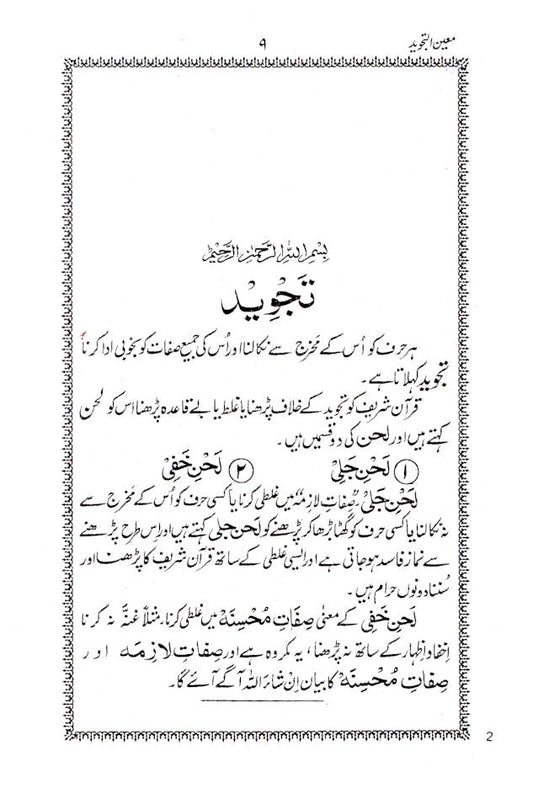 معین التجوید
۹
بِسْمِ اللّٰهِ الرَّحْمٰنِ الرَّحِيْمِ
تَجْوِیْد
ہر حرف کو اُس کے مَخرج سے نکالنا اور اُس کی جمیع صفات کو بخوبی ادا کرنا
تجوید کہلاتا ہے۔
قرآن شریف کو تجوید کے خلاف پڑھنا یا غلط یا بے قاعدہ پڑھنا اس کو لحن
کہتے ہیں اور لحن کی دو قسمیں ہیں۔
① لَحْنِ جَلِیْ ② لَحْنِ خَفِیْ
لَحْنِ جَلِیْ: صِفَاتِ لازِمَہ میں غلطی کرنا یا کسی حرف کو اُس کے مَخرج سے
نہ نکالنا یا کسی حرف کو گھٹا بڑھا کر پڑھنے کو لحن جلی کہتے ہیں اور اِس طرح پڑھنے
سے نماز فاسد ہو جاتی ہے اور ایسی غلطی کے ساتھ قرآن شریف کا پڑھنا اور
سُننا دونوں حرام ہیں۔
لَحْنِ خَفِیْ کے معنی صِفَاتِ مُحْسِنَہْ میں غلطی کرنا، مثلاً غنّہ نہ کرنا
اِخفا و اِظہار کے ساتھ نہ پڑھنا، یہ مکروہ ہے اور صِفَاتِ لازِمَہ اور
صِفَاتِ مُحْسِنَہْ کا بیان اِنْ شاءَ اللہ آگے آئے گا۔
2